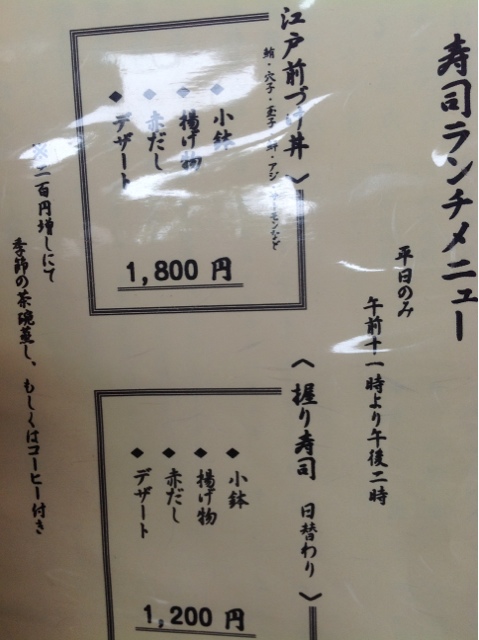 寿司ランチメニュー
平日のみ
午前十一時より午後二時
江戸前づけ丼〉
鮪・穴子・玉子・
・アジ・
など
◆小鉢
◆揚げ物
◆赤だし
◆デザート
1,800 円
〈握り寿司 日替わり〉
◆小鉢
◆揚げ物
◆赤だし
◆デザート
1,200 円
二百円増しにて
季節の茶碗蒸し、もしくはコーヒー付き